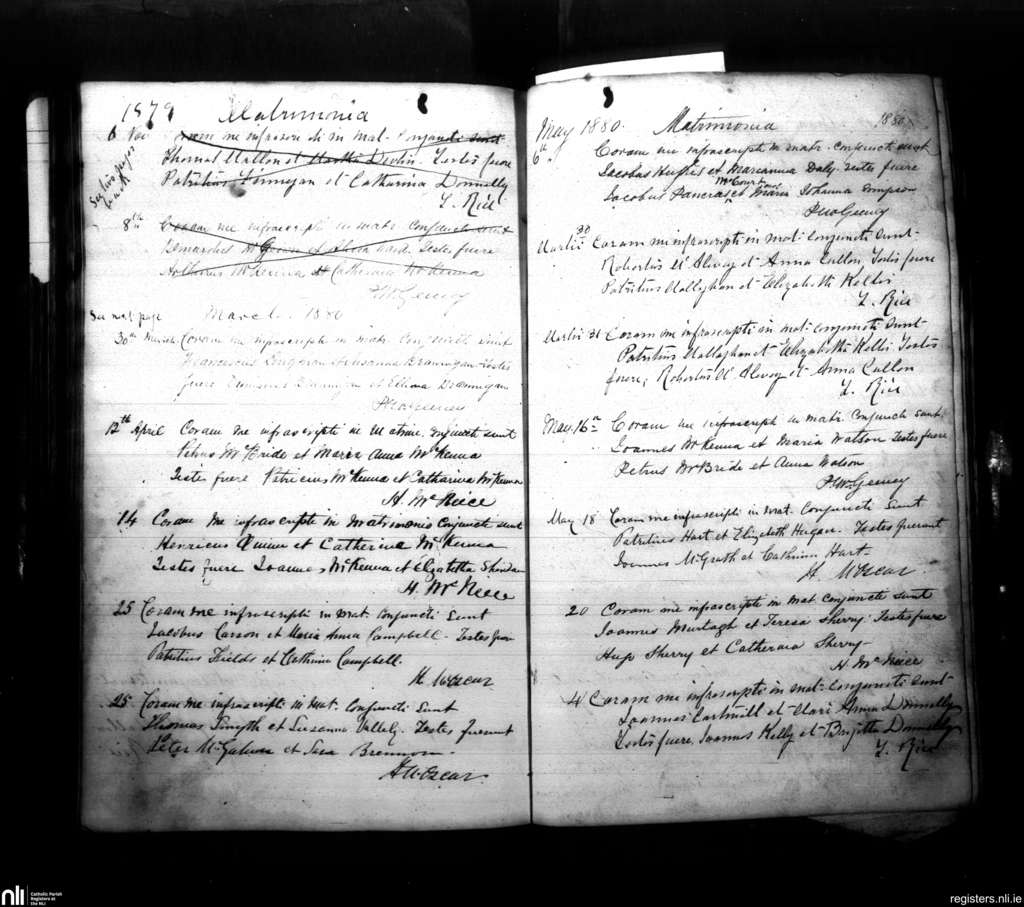 1879 Matrimonia
6 Nov Coram me infrascripti in mat. Conjuncti sunt
Thomas Mallon et Martha Devlin. Testes fuere
Patritius Finnegan et Catharina Donnelly
L. Rice
See two pages back
8th Coram me infrascripti in mat. Conjuncti sunt
et Ward. Testes fuere
McKenna et Catherina McKenna
P. McGeeney
See next page
March 1880
30th March. Coram me infrascripti in mat. Conjuncti sunt
Franciscus et Brannigan Testes
fuere Brannigan et Brannigan
P. McGeeney
12th April Coram me infrascripti in Matrim. conjuncti sunt
Petrus McBride et Maria Anna McKenna
Testes fuere Patricius McKenna et Catharina McKenna
H. McNeice
14 Coram me infrascripti in matrimonio Conjuncti sunt
Henricus Quinn et Catherine McKenna
Testes fuere Joannes McKenna et Elizabetta
H. McNeice
25 Coram me infrascripti in mat. Conjuncti Sunt
Jacobus Carson et Maria Anna Campbell. Testes fuere
Patritius Fields et Cathrina Campbell.
H. McOscar
25 Coram me infrascripti in Mat. Conjuncti Sunt
Thomas Smyth et Susanna Vallely. Testes fuerunt
Peter et Brennon.
H McOscar
May 1880. Matrimonia 1880
6th Coram me infrascripti in matr. conjuncti sunt
Jacobus Hughes et Marianna Daly. Testes fuere
McCourt
Jacobus Pancras et Maria Johanna
P McGeeney
Martii 30 Coram me infrascripti in mat. conjuncti sunt
Robertus McIlvoy et Anna Cullon. Testes fuere
Patritius Mallaghan et Elizabetta Kellis
L. Rice
Martii 31 Coram me infrascripti in mat. conjuncti sunt
Patritius Mallaghan et Elizabetta Kellis Testes
fuere, Robertus McIlvoy et Anna Cullon
L. Rice
May. 16th Coram me infrascripti in matr. Conjuncti sunt
Joannes McKenna et Maria Watson Testes fuere
Petrus McBride et Anna Watson
P. McGeeney
May 18 Coram me infrascripti in mat. Conjuncti Sunt
Patritius Hart et Elizibeth Hagan. Testes fuerunt
Joannes McGrath et Cathrina Hart
H McOscar
20 Coram me infrascripti in mat. conjuncti sunt
Joannes Murtagh et Teresa Sherry. Testes fuere
Hugo Sherry et Catherina Sherry
H. McNeice
4 Coram me infrascripti in mat. Conjuncti Sunt
Joannes Cartmill et Maria Anna Donnelly
Testes fuere, Joannes Kelly et Brigitta Donnelly
L. Rice
nli Catholic Parish
Registers at
the NLI
registers.nli.ie